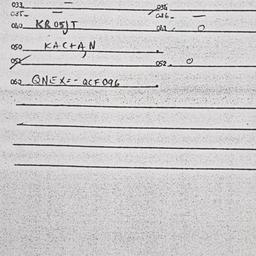 033 036
035- 036-
040 KROSIT 041.
050 KACTAN
051 052. 0
052 QNEX=- QCF096